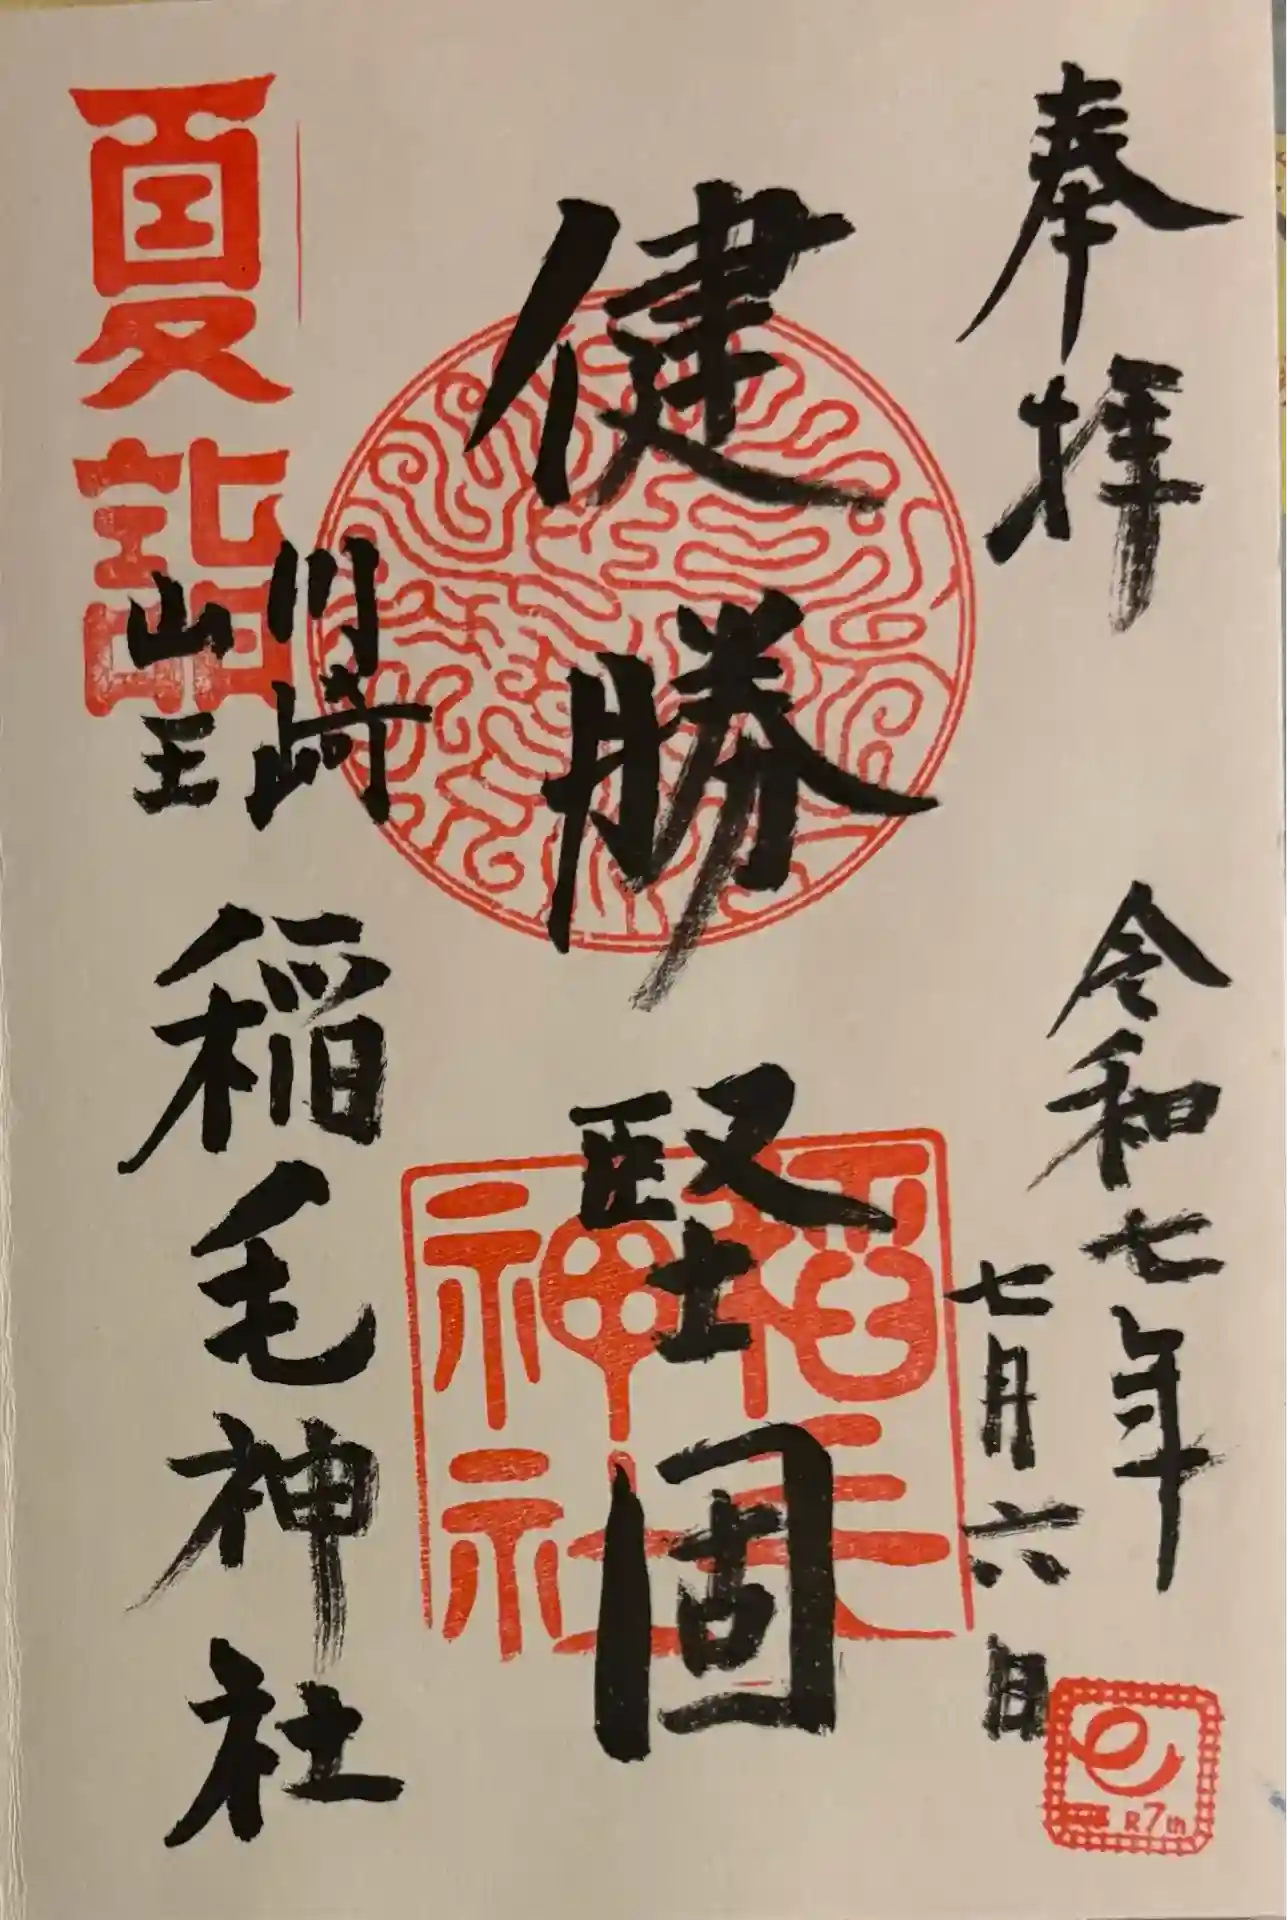 奉拝
令和七年
七月六日
健勝堅固
川崎
山王
稲毛神社
夏詣
稲毛
神社
R7th